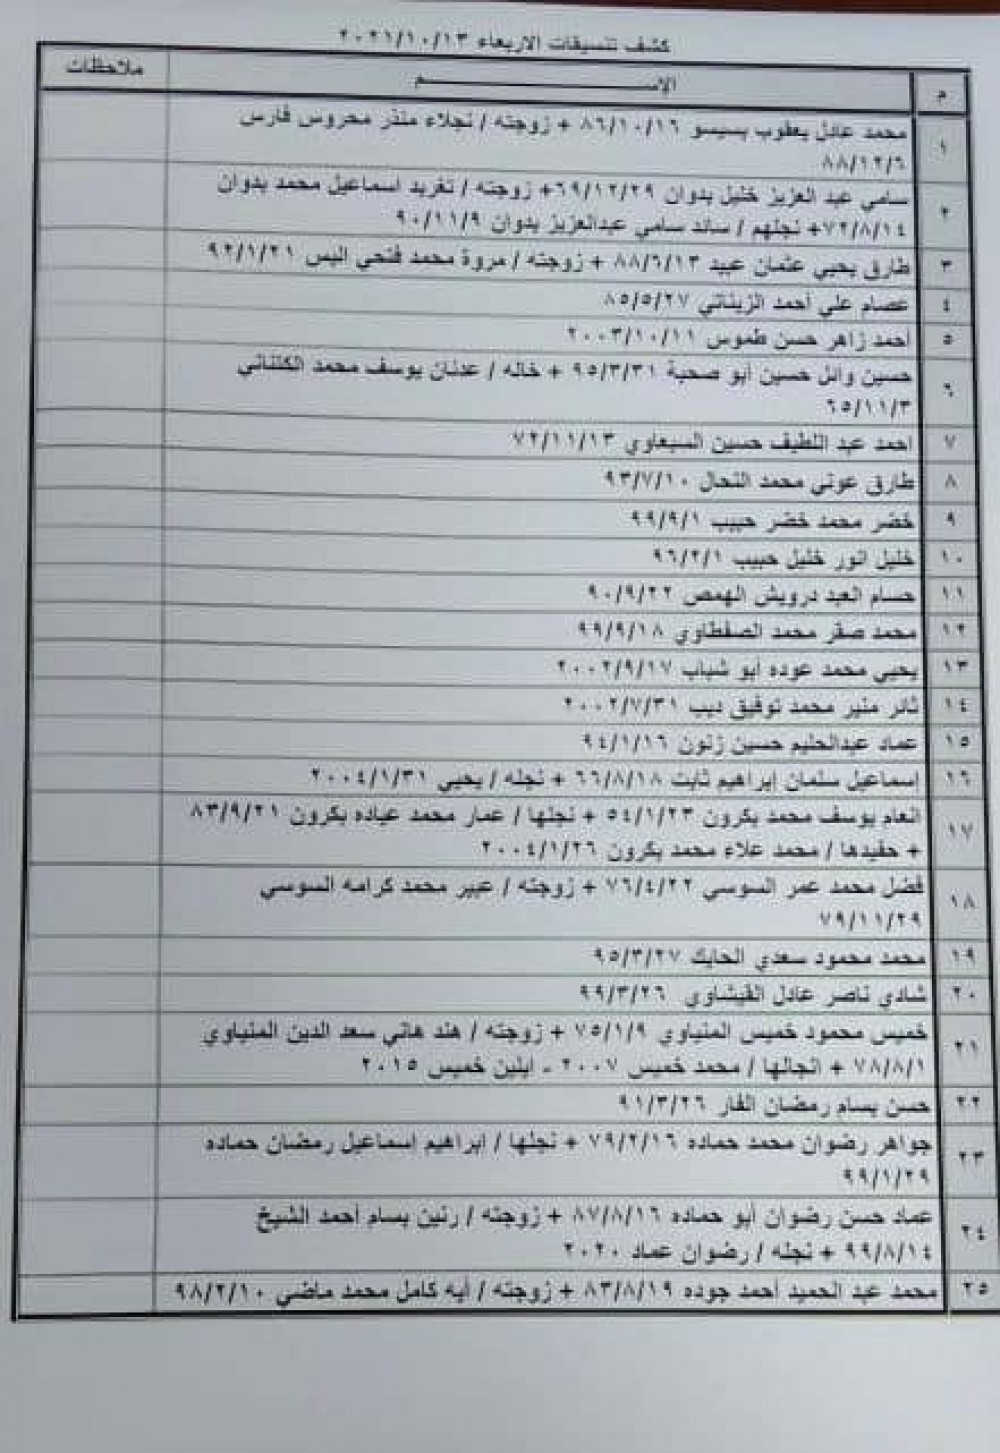 كشف تنسيقات الاربعاء ٢٠٢١/١٠/١٣
م الإســـــــم ملاحظات
١ محمد عادل يعقوب بسيسو ٨٦/١٠/١٦ + زوجته / نجلاء منذر محروس فارس
٨٨/١٢/٦
٢ سامي عبد العزيز خليل بدوان ٦٩/١٢/٢٩+ زوجته / تغريد اسماعيل محمد بدوان
٧٢/٨/١٤+ نجلهم / سائد سامي عبدالعزيز بدوان ٩٠/١١/٩
٣ طارق يحيي عثمان عبيد ٨٨/٦/١٣ + زوجته / مروة محمد فتحي اليس ٩٢/١/٢١
٤ عصام علي أحمد الزيناتي ٨٥/٥/٢٧
٥ أحمد زاهر حسن طموس ٢٠٠٣/١٠/١١
٦ حسين وائل حسين أبو صحبة ٩٥/٣/٣١ + خاله / عدنان يوسف محمد الكلناني
٦٥/١١/٣
٧ احمد عبد اللطيف حسين السبعاوي ٧٢/١١/١٣
٨ طارق عوني محمد النحال ٩٣/٧/١٠
٩ خضر محمد خضر حبيب ٩٩/٩/١
١٠ خليل انور خليل حبيب ٩٦/٢/١
١١ حسام العبد درويش الهمص ٩٠/٩/٢٢
١٢ محمد صقر محمد الصفطاوي ٩٩/٩/١٨
١٣ يحيي محمد عوده أبو شباب ٢٠٠٢/٩/١٧
١٤ ثائر منير محمد توفيق ديب ٢٠٠٢/٧/٣١
١٥ عماد عبدالحليم حسين زنون ٩٤/١/١٦
١٦ إسماعيل سلمان إبراهيم ثابت ٦٦/٨/١٨ + نجله / يحيي ٢٠٠٤/١/٣١
١٧ انعام يوسف محمد بكرون ٥٤/١/٢٣ + نجلها / عمار محمد عباده بكرون ٨٣/٩/٢١
+ حفيدها / محمد علاء محمد بكرون ٢٠٠٤/١/٢٦
١٨ فضل محمد عمر السوسي ٧٦/٤/٢٢ + زوجته / عبير محمد كرامه السوسي
٧٩/١١/٢٩
١٩ محمد محمود سعدي الحايك ٩٥/٣/٢٧
٢٠ شادي ناصر عادل القيشاوي ٩٩/٣/٢٦
٢١ خميس محمود خميس المنياوي ٧٥/١/٩ + زوجته / هند هاني سعد الدين المنياوي
٧٨/٨/١ + انجالها / محمد خميس ٢٠٠٧ - ايلين خميس ٢٠١٥
٢٢ حسن بسام رمضان الفار ٩١/٣/٢٦
٢٣ جواهر رضوان محمد حماده ٧٩/٢/١٦ + نجلها / إبراهيم إسماعيل رمضان حماده
٩٩/١/٢٩
٢٤ عماد حسن رضوان أبو حماده ٨٧/٨/١٦ + زوجته / رنين بسام أحمد الشيخ
٩٩/٨/١٤ + نجله / رضوان عماد ٢٠٢٠
٢٥ محمد عبد الحميد أحمد جوده ٨٣/٨/١٩ + زوجته / أيه كامل محمد ماضي ٩٨/٢/١٠